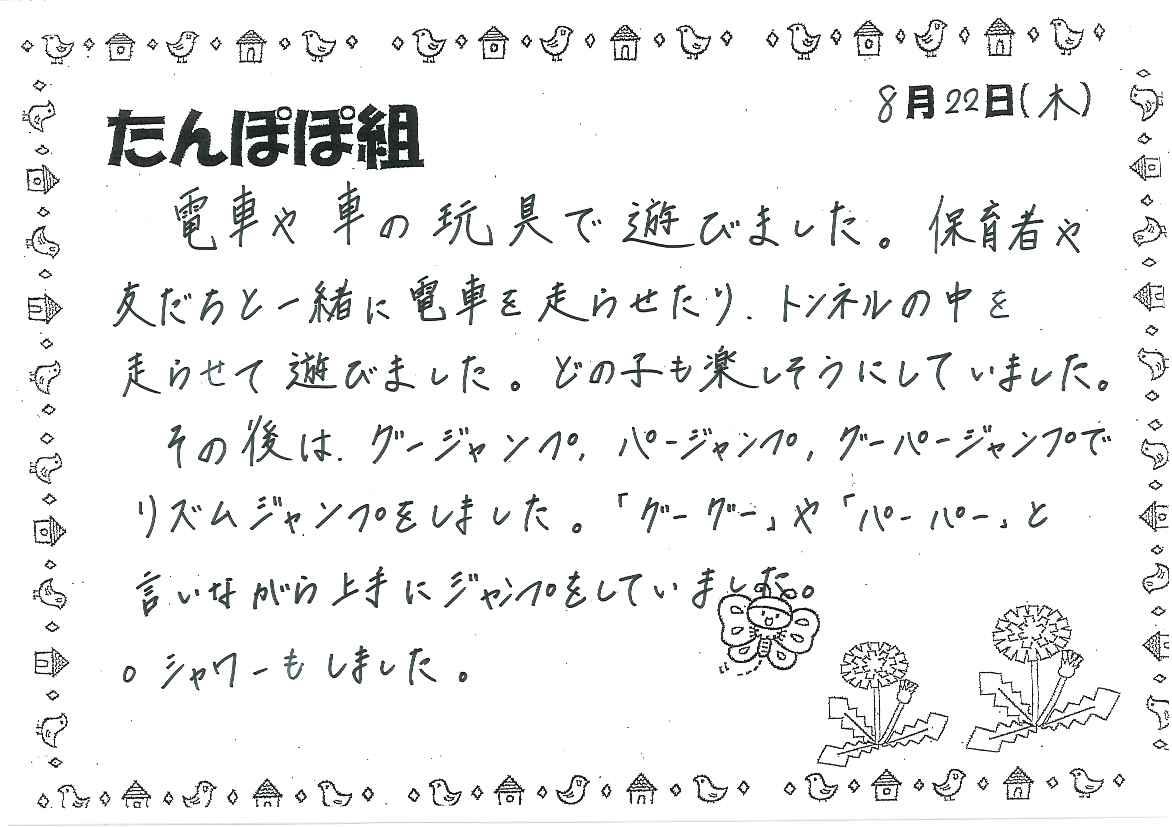 8月22日(木)
たんぽぽ組
電車や車の玩具で遊びました。保育者や
友だちと一緒に電車を走らせたり、トンネルの中を
走らせて遊びました。どの子も楽しそうにしていました。
その後は、グージャンプ,パージャンプ,グーパージャンプで
リズムジャンプをしました。「グーグー」や「パーパー」と
言いながら上手にジャンプをしていました。
○シャワーもしました。